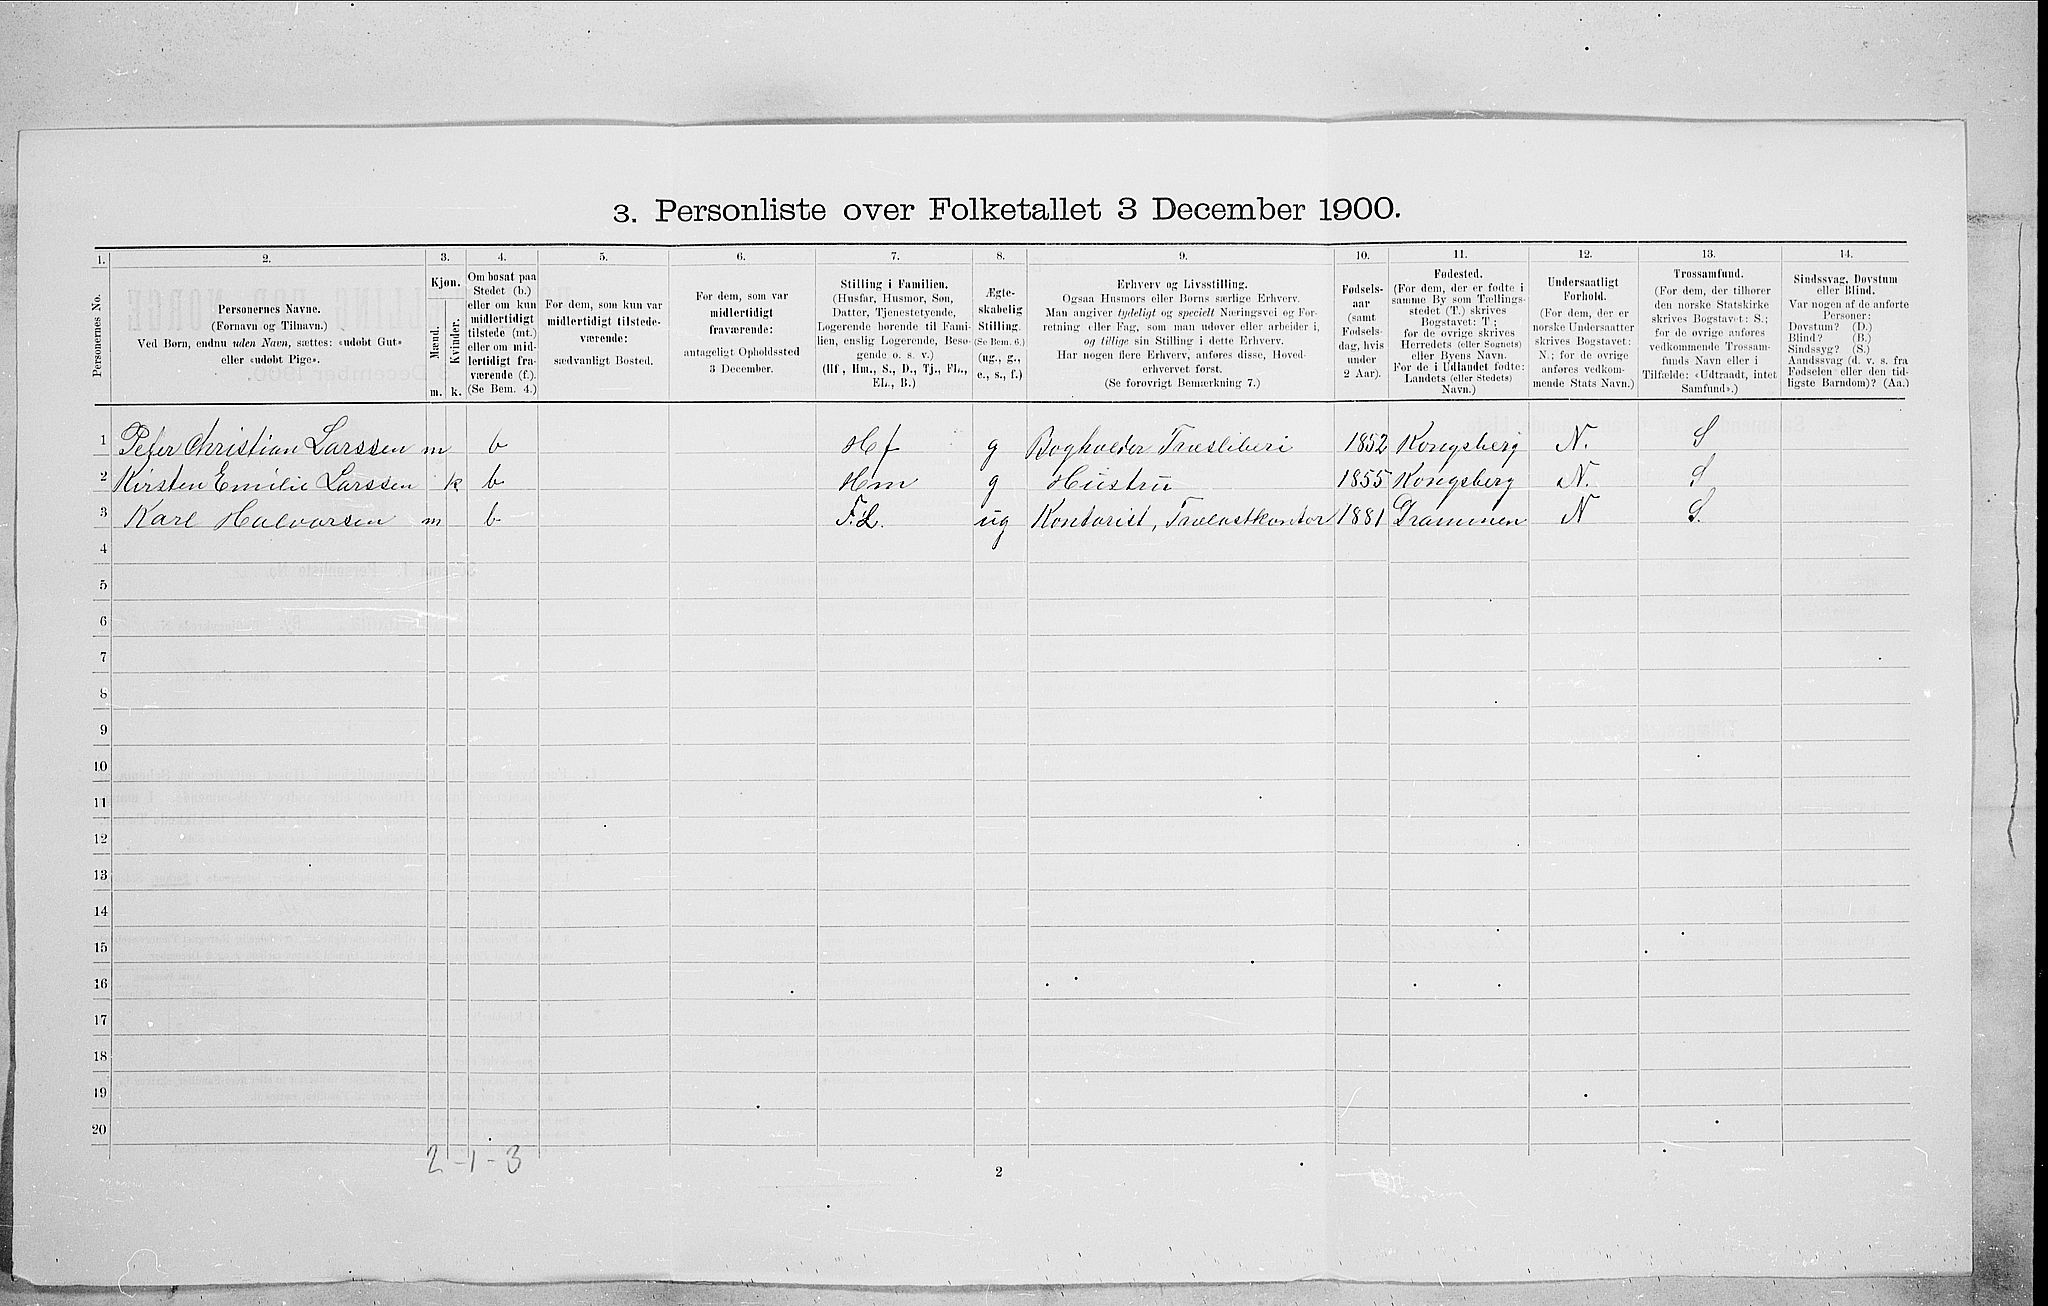 3. Personliste over Folketallet 3 December 1900.
1. 2. 3. 4. 5. 6. 7. 8. 9. 10. 11. 12. 13. 14.
Personernes No.
Personernes Navne.
(Fornavn og Tilnavn.)
Ved Børn, endnu uden Navn, sættes: «udøbt Gut»
eller «udøbt Pige».
Kjøn.
Mænd.
Kvinder.
m. k.
Om bosat paa
Stedet (b.)
eller om kun
midlertidigt
tilstede (mt.)
eller om mid-
lertidigt fra-
værende (f.).
(Se Bem. 4.)
For dem, som kun var
midlertidigt tilstede-
værende:
sædvanligt Bosted.
For dem, som var
midlertidigt
fraværende:
antageligt Opholdssted
3 December.
Stilling i Familien.
(Husfar, Husmor, Søn,
Datter, Tjenestetyende,
Logerende hørende til Fami-
lien, enslig Logerende, Besø-
gende o. s. v.)
(Hf., Hm., S., D., Tj., FL.,
EL., B.)
Ægte-
skabelig
Stilling.
(Se Bem. 6.)
(ug., g.,
e., s., f.)
Erhverv og Livsstilling.
Ogsaa Husmors eller Børns særlige Erhverv.
Man angiver tydeligt og specielt Næringsvei og For-
retning eller Fag, som man udøver eller arbeider i,
og tillige sin Stilling i dette Erhverv.
Har nogen flere Erhverv, anføres disse, Hoved-
erhvervet først.
(Se forøvrigt Bemærkning 7.)
Fødsels-
aar
(samt
Fødsels-
dag, hvis
under
2 Aar).
Fødested.
(For dem, der er fødte i
samme By som Tællings-
stedet (T.) skrives
Bogstavet: T;
for de øvrige skrives
Herredets (eller Sognets)
eller Byens Navn.
For de i Udlandet fødte:
Landets (eller Stedets)
Navn.)
Undersaatligt
Forhold.
(For dem, der er
norske Undersaatter
skrives Bogstavet:
N.; for de øvrige
anføres vedkom-
mende Stats Navn.)
Trossamfund.
(For dem, der tilhører
den norske Statskirke
skrives Bogstavet: S.;
for de øvrige anføres
vedkommende Trossam-
funds Navn eller i
Tilfælde: «Udtraadt, intet
Samfund».)
Sindssvag, Døvstum
eller Blind.
Var nogen af de anførte
Personer:
Døvstum? (D.)
Blind? (B.)
Sindssyg? (S.)
Aandssvag (d. v. s. fra
Fødselen eller den tid-
ligste Barndom)? (Aa.)
1 Peter Christian Larssen m b Hf g Bogholder Træsliberi 1852 Kongsberg N. S
2 Kirsten Emilie Larssen k b Hm g Hustru 1855 Kongsberg N. S
3 Karl Halvorsen m b F.L. ug Kontorist, Trælastkontor 1881 Drammen N S.
4
5
6
7
8
9
10
11
12
13
14
15
16
17
18
19
20
2-1-3
2